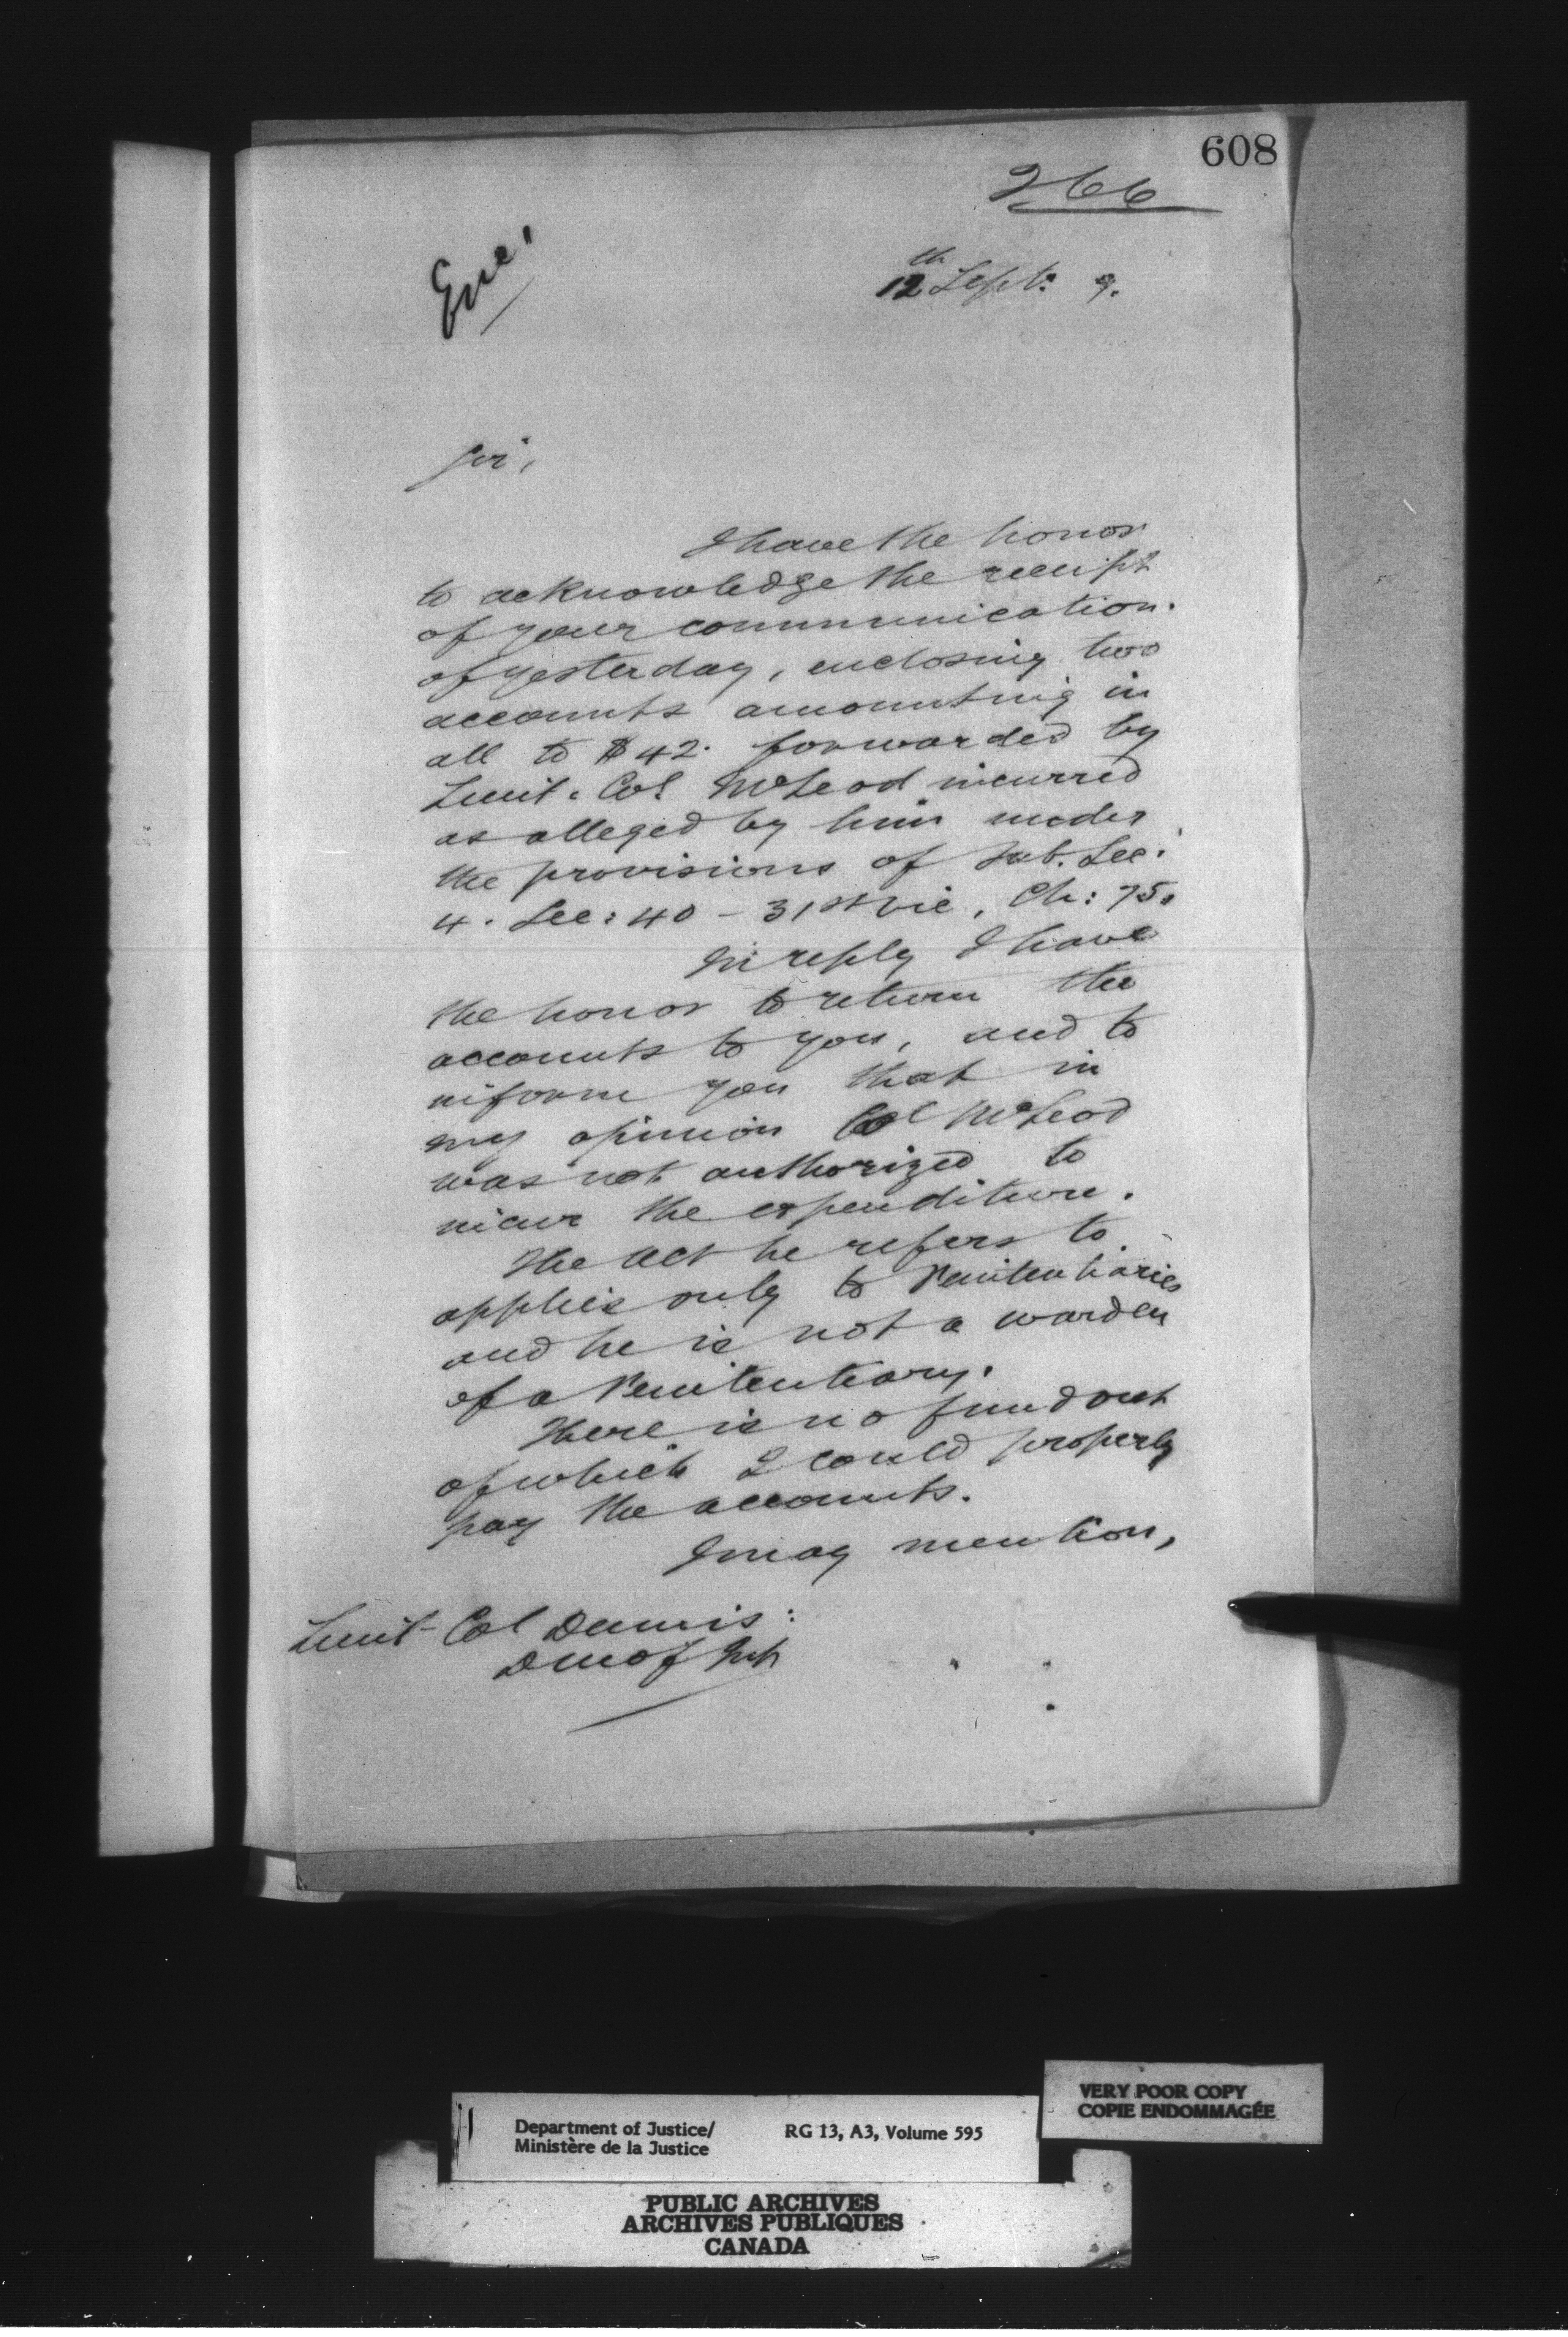 608
266
Enc.
12th Sept. 9.
Sir,
I have the honor
to acknowledge the receipt
of your communication
of yesterday, enclosing two
accounts amounting in
all to $42. forwarded by
Lieut. Col McLeod incurred
as alleged by him under
the provisions of Sub. Sec:
4. Sec: 40 - 31st Vic, Ch: 75.
In reply I have
the honor to return the
accounts to you, and to
inform you that in
my opinion Col McLeod
was not authorized to
incur the expenditure.
The Act he refers to
applies only to Penitentiaries
and he is not a warden
of a Penitentiary.
There is no fund out
of which I could properly
pay the accounts.
I may mention,
Lieut-Col Dennis:
D M of Int
Department of Justice/
Ministère de la Justice
RG 13, A3, Volume 595
VERY POOR COPY
COPIE ENDOMMAGÉE
PUBLIC ARCHIVES
ARCHIVES PUBLIQUES
CANADA